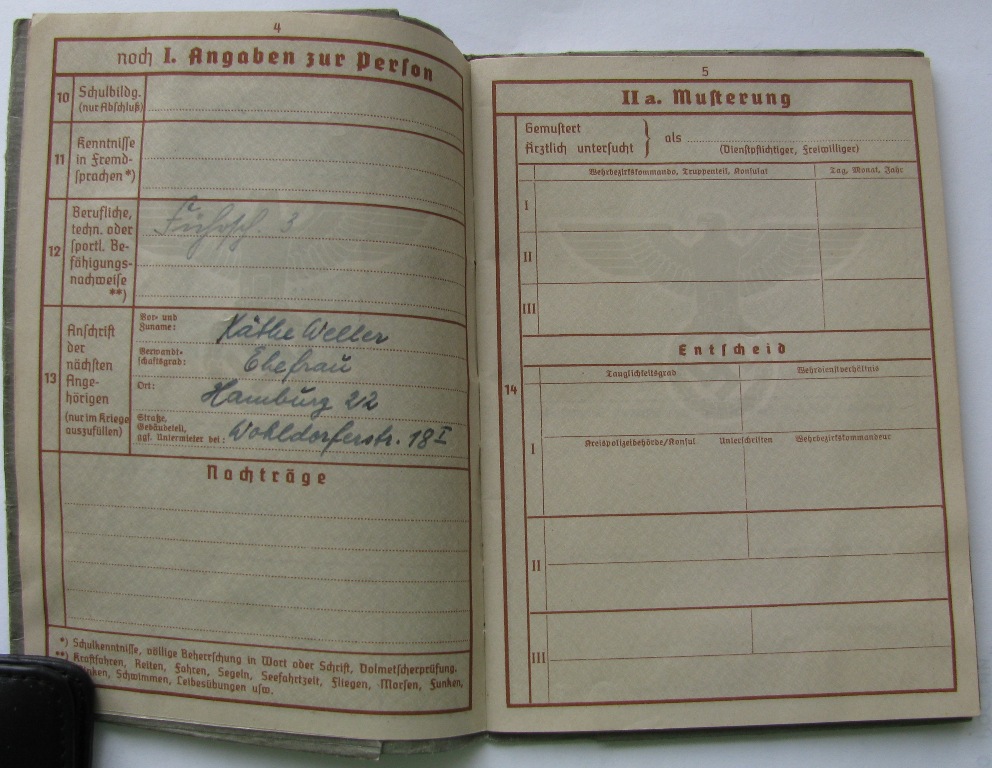 4
noch I. Angaben zur Person
10
Schulbildg.
(nur Abschluß)
11
Kenntnisse
in Fremd-
sprachen*)
12
Berufliche,
techn. oder
sportl. Be-
fähigungs-
nachweise
**)
3
13
Anschrift
der
nächsten
Ange-
hörigen
(nur im Kriege
auszufüllen)
Vor- und
Zuname:
Käthe Weller
Verwandt-
schaftsgrad:
Ehefrau
Ort:
Hamburg 22
Straße,
Gebäudeteil,
ggf. Untermieter bei:
Wohldorferstr. 18 I
Nachträge
*) Schulkenntnisse, völlige Beherrschung in Wort oder Schrift, Dolmetscherprüfung.
**) Kraftfahren, Reiten, Fahren, Segeln, Seefahrtzeit, Fliegen, Morsen, Funken,
Schwimmen, Leibesübungen usw.
5
II a. Musterung
Gemustert
Ärztlich untersucht
} als
(Dienstpflichtiger, Freiwilliger)
Wehrbezirkskommando, Truppenteil, Konsulat
Tag, Monat, Jahr
I
II
III
Entscheid
14
Tauglichkeitsgrad
Wehrdienstverhältnis
I
Kreispolizeibehörde/Konsul Unterschriften Wehrbezirkskommandeur
II
III